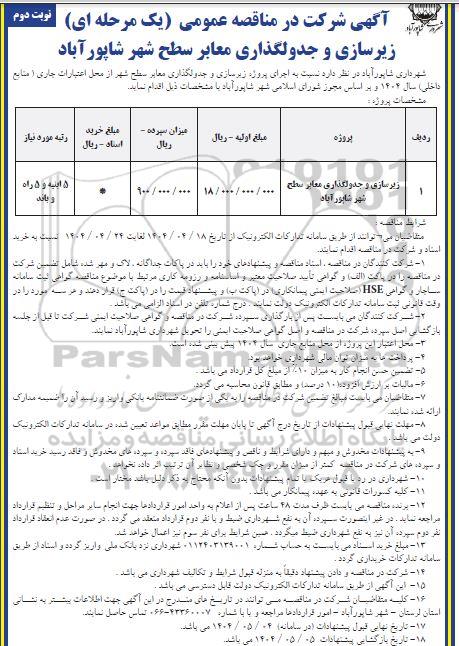 نوبت دوم
آگهی شرکت در مناقصه عمومی (یک مرحله ای)
زیرسازی و جدولگذاری معابر سطح شهر شاپورآباد
شهرداری شاپورآباد در نظر دارد نسبت به اجرای پروژه زیرسازی و جدولگذاری معابر سطح شهر از محل اعتبارات جاری ( منابع
داخلی) سال ۱۴۰۴ و بر اساس مجوز شورای اسلامی شهر شاپورآباد با مشخصات ذیل اقدام نماید.
مشخصات پروژه :
ردیف پروژه مبلغ اولیه – ریال میزان سپرده – ریال مبلغ خرید اسناد – ریال رتبه مورد نیاز
۱ زیرسازی و جدولگذاری معابر سطح شهر شاپورآباد ۱۸/۰۰۰/۰۰۰/۰۰۰ ۹۰۰/۰۰۰/۰۰۰ * ۵ ابنیه و ۵ راه و باند
شرایط مناقصه :
متقاضیان می توانند از طریق سامانه تدارکات الکترونیک از تاریخ ۱۸ / ۰۴ / ۱۴۰۴ لغایت ۲۴ / ۰۴ / ۱۴۰۴ نسبت به خرید
اسناد و شرکت در مناقصه اقدام نمایند.
۱– شرکت کنندگان در مناقصه ، اسناد مناقصه و پیشنهادهای خود را باید در پاکات جداگانه ، لاک و مهر شده، شامل تضمین شرکت
در مناقصه را در پاکت (الف) و گواهی تأیید صلاحیت معتبر و اساسنامه و رزومه کاری مرتبط با موضوع مناقصه گواهی ثبت سامانه
ساجار و گواهی HSE (صلاحیت ایمنی پیمانکاری) در (پاکت ب) و پیشنهاد قیمت را در (پاکت ج) قرار دهند و هر سه مورد را در
وقت قانونی ثبت سامانه تدارکات الکترونیک دولت نمایند . درج شماره تلفن در اسناد الزامی می باشد .
۲– شرکت کنندگان می بایست پس از بارگذاری سپرده شرکت در مناقصه و گواهی صلاحیت ایمنی شرکت تا قبل از جلسه
بازگشایی اصل سپرده شرکت در مناقصه و اصل گواهی صلاحیت ایمنی را تحویل شهرداری شاپورآباد نمایند.
۳– محل اعتبار این پروژه از محل منابع جاری سال ۱۴۰۴ پیش بینی شده است.
۴– پرداخت ها به میزان توان مالی شهرداری خواهد بود.
۵– تضمین حسن انجام کار به میزان ۱۰٪ از مبلغ کل قرارداد می باشد .
۶– مالیات بر ارزش افزوده: (۱۰ درصد) و مطابق قانون محاسبه می گردد.
۷– متقاضیان می بایست مبالغ تضمین شرکت در مناقصه را به یکی از صورت ضمانتنامه بانکی واریز و رسید آن را ضمیمه مدارک
ارائه شده نمایند.
۸– مهلت نهایی قبول پیشنهادات از تاریخ درج آگهی تا پایان مهلت مقرر مطابق مواعد تعیین شده در سامانه تدارکات الکترونیک
دولت می باشد .
۹– به پیشنهادات مخدوش و مبهم و دارای شرایط و ناقص و پیشنهادهای فاقد سپرده و سپرده های مخدوش و فاقد رسید خرید اسناد
و سپرده های شرکت در مناقصه کمتر از میزان مقرر و چک شخصی و نظایر آن ترتیب اثر داده نخواهد .
۱۰– شهرداری در رد یا قبول هریک یا تمام پیشنهادات بدون آنکه محتاج به ذکر دلیل باشد مختار است .
۱۱– کلیه کسورات قانونی به عهده پیمانکار می باشد .
۱۲– برنده مناقصه می بایست ظرف مدت ۴۸ ساعت پس از اعلام به واحد امور قراردادها جهت انجام سایر مراحل و تنظیم قرارداد
مراجعه نماید . در غیر اینصورت سپرده آن به نفع شهرداری ضبط و با نفر دوم قرارداد منعقد می گردد . در صورت عدم انعقاد قرارداد
نفر دوم سپرده آن نیز به نفع شهرداری ضبط میگردد . همین شرایط برای نفر سوم نیز اعمال خواهد شد.
۱۳– مبلغ خرید اسناد می بایست به حساب شماره ۰۱۱۲۴۰۳۱۳۹۰۰۱ شهرداری نزد بانک ملی واریز گردد و اسناد از طریق
سامانه تدارکات خریداری گردد .
۱۴– شرکت در مناقصه و دادن پیشنهاد دقیقاً به منزله قبول شرایط و تکالیف شهرداری می باشد .
۱۵– این آگهی از طریق سامانه تدارکات الکترونیک دولت قابل دسترسی می باشد .
۱۶– کلیه متقاضیان شرکت در مناقصه می توانند در تاریخ های مندرج در این آگهی جهت اطلاعات بیشتر به نشانی
استان لرستان – شهر شاپورآباد – امور قراردادها مراجعه و یا با شماره ۴۳۳۶۰۰۰۷–۰۶۶ تماس حاصل نمایند.
۱۷– تاریخ نهایی قبول پیشنهادات (در سامانه) ۰۴ / ۰۵ / ۱۴۰۴ می باشد.
۱۸– تاریخ بازگشایی پیشنهادات ۰۵ / ۰۵ / ۱۴۰۴ می باشد.